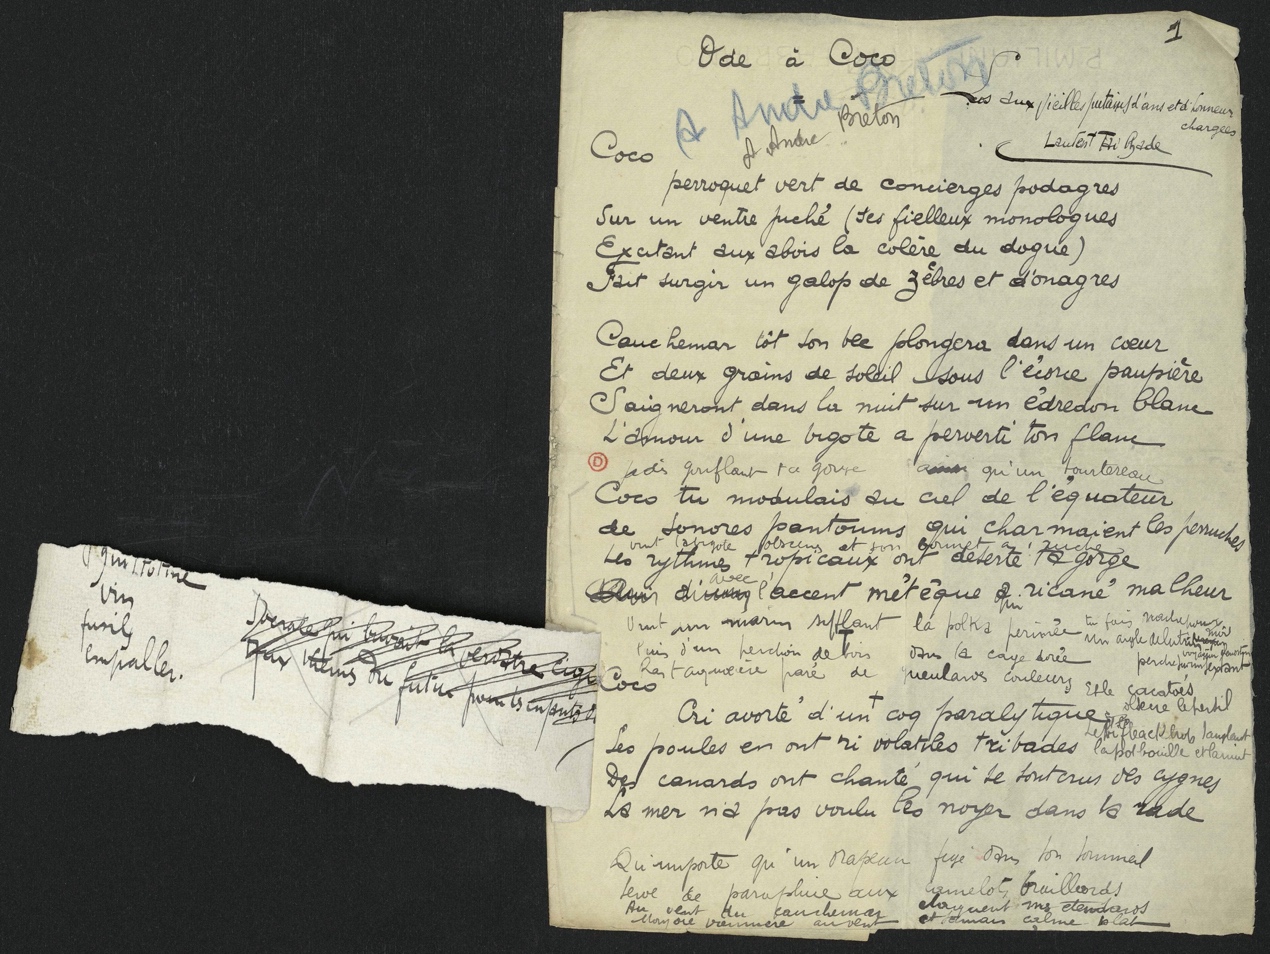 1
Ode à Coco
A André Breton
A André Breton
aux vieilles putains d'ans et d'honneur
chargées
Laurent Tailhade
Coco
perroquet vert de concierges podagres
Sur un ventre juché (ses fielleux monologues
Excitant aux abois la colère du dogue)
Fait surgir un galop de zèbres et d'onagres
Cauchemar tôt son bec plongera dans un cœur
Et deux grains de soleil sous l'écorce paupière
Saigneront dans la nuit sur un édredon blanc
L'amour d'une bigote a perverti ton flanc
D
jadis gonflant ta gorge ainsi qu'un tourtereau
Coco tu modulais au ciel de l'équateur
de sonores pantoums qui charmaient les perruches
Les rythmes tropicaux ont déserté ta gorge
avec
l'accent métèque a ricané malheur
Vint un marin sifflant la polka périmée
Puis d'un perchoir de bois dans la cage dorée
paré de gueulards couleurs
Coco
Cri avorté d'un coq paralytique
Les poules en ont ri volatiles tribades
Des canards ont chanté qui se sont crus des cygnes
La mer n'a pas voulu les noyer dans la rade
Et le cacatoès
la pot-bouille et
Qu'importe qu'un drapeau figé dans ton sommeil
serve de parapluie aux camelots braillards
Au vent du cauchemar claquent mes étendards
au vent et jamais calme plat
guillotine
vin
fusil
empaller.
Socrate qui buvait la verdâtre cigüe
Tu viens du futur pour les enfants